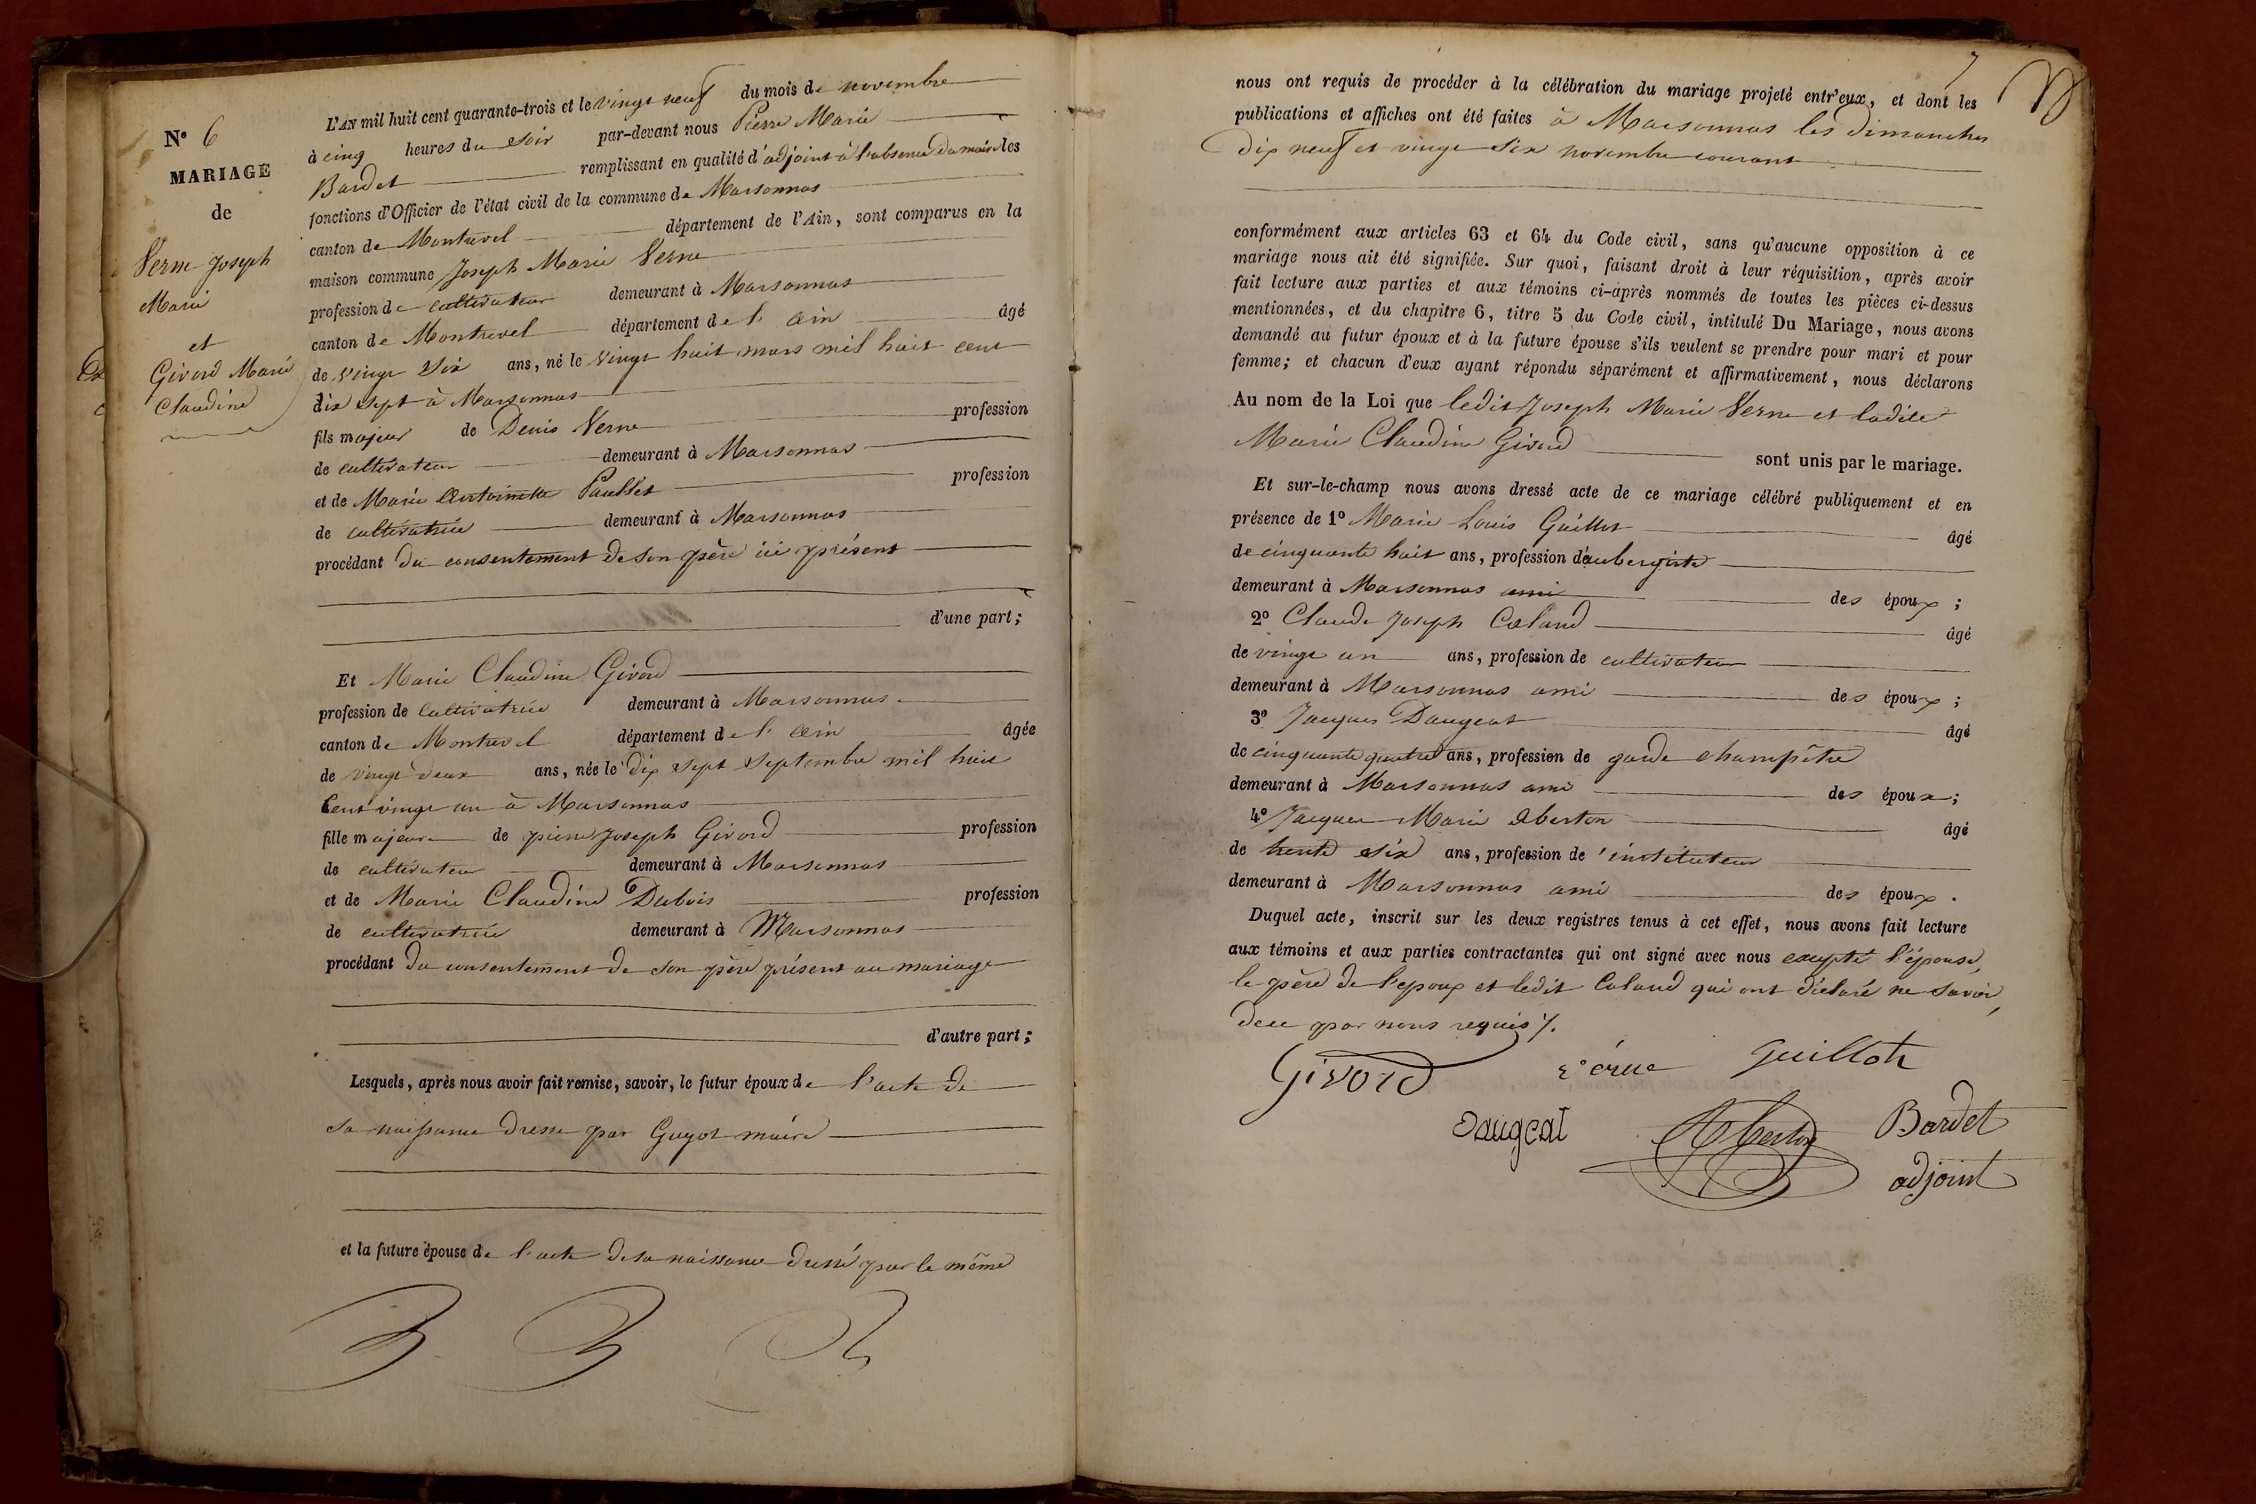 N° 6
MARIAGE
de
Verne Joseph
Marie
et
Girord Marie
Claudine
L'AN mil huit cent quarante-trois et le vingt neuf du mois de novembre
à cinq heures du soir par-devant nous Pierre Marie
Bardet remplissant en qualité d'adjoint à l'absence du maire les
fonctions d'Officier de l'état civil de la commune de Marsonnas
canton de Montrevel département de l'Ain, sont comparus en la
maison commune Joseph Marie Verne
profession de cultivateur demeurant à Marsonnas
canton de Montrevel département de l'ain âgé
de vingt six ans, né le vingt huit mars mil huit cent
dix sept à Marsonnas
fils majeur de Denis Verne profession
de cultivateur demeurant à Marsonnas
et de Marie Antoinette profession
de cultivatrice demeurant à Marsonnas
procédant du consentement de son père ici présent
d'une part;
Et Marie Claudine Girord
profession de cultivatrice demeurant à Marsonnas
canton de Montrevel département de l'ain âgée
de vingt deux ans, née le dix sept septembre mil huit
cent vingt un à Marsonnas
fille majeure de pierre Joseph Girord profession
de cultivateur demeurant à Marsonnas
et de Marie Claudine Dubois profession
de cultivatrice demeurant à Marsonnas
procédant du consentement de son père présent au mariage
d'autre part;
Lesquels, après nous avoir fait remise, savoir, le futur époux de l'acte de
sa naissance dressé par Guyot maire
et la future épouse de l'acte de sa naissance dressé par le même
7
nous ont requis de procéder à la célébration du mariage projeté entr'eux, et dont les
publications et affiches ont été faites à Marsonnas les dimanches
dix neuf et vingt six novembre courant
conformément aux articles 63 et 64 du Code civil, sans qu'aucune opposition à ce
mariage nous ait été signifiée. Sur quoi, faisant droit à leur réquisition, après avoir
fait lecture aux parties et aux témoins ci-après nommés de toutes les pièces ci-dessus
mentionnées, et du chapitre 6, titre 5 du Code civil, intitulé Du Mariage, nous avons
demandé au futur époux et à la future épouse s'ils veulent se prendre pour mari et pour
femme; et chacun d'eux ayant répondu séparément et affirmativement, nous déclarons
Au nom de la Loi que ledit Joseph Marie Verne et ladite
Marie Claudine Girord sont unis par le mariage.
Et sur-le-champ nous avons dressé acte de ce mariage célébré publiquement et en
présence de 1° Marie Louis Guillot âgé
de cinquante huit ans, profession d'aubergiste
demeurant à Marsonnas ami des époux;
2° Claude Joseph Caland âgé
de vingt un ans, profession de cultivateur
demeurant à Marsonnas ami des époux;
3° Jacques Daugeat âgé
de cinquante quatre ans, profession de garde champêtre
demeurant à Marsonnas ami des époux;
4° Jacques Marie Aberton âgé
de trente six ans, profession de instituteur
demeurant à Marsonnas ami des époux.
Duquel acte, inscrit sur les deux registres tenus à cet effet, nous avons fait lecture
aux témoins et aux parties contractantes qui ont signé avec nous excepté l'épouse,
le père de l'epoux et ledit Caland qui ont déclaré ne savoir
de ce par nous requis ./.
Girord Verne Guillot
Daugeat Aberton Bardet
adjoint